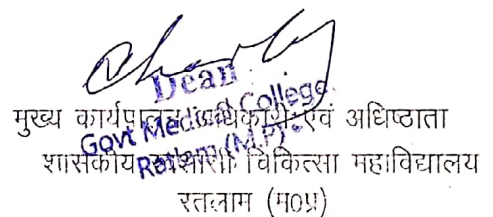 Dean
Govt Medical College
Ratlam (M.P)
मुख्य कार्यपालन अधिकारी एवं अधिष्ठाता
शासकीय स्वशासी चिकित्सा महाविद्यालय
रतलाम (म0प्र)